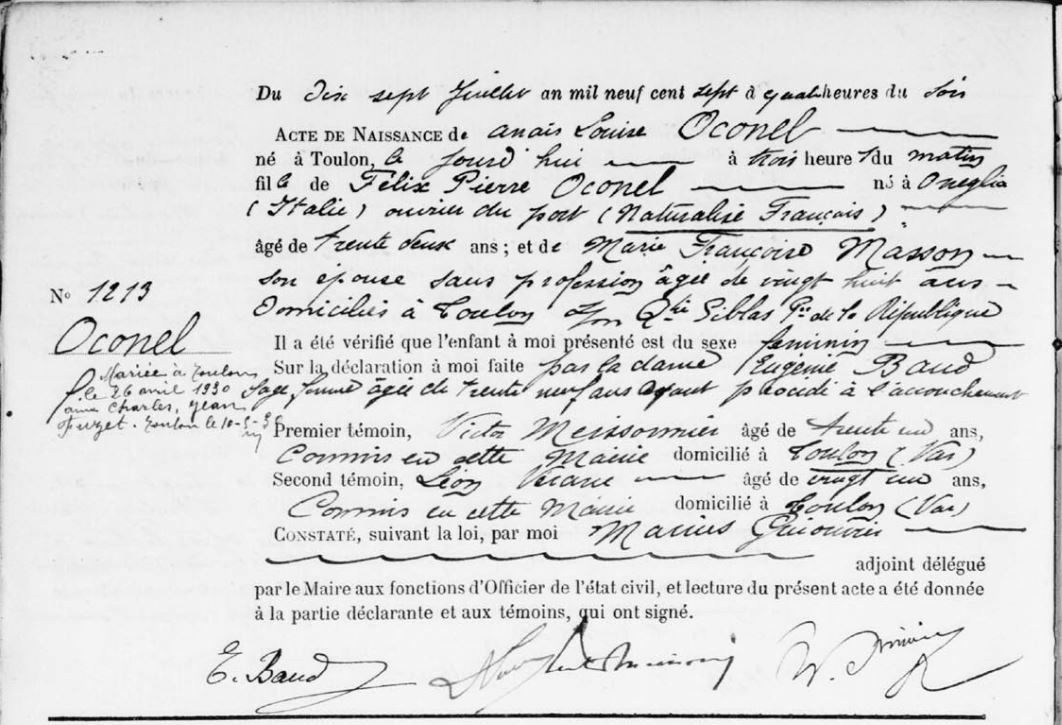 Du dix sept Juillet an mil neuf cent sept à quatre heures du soir
ACTE DE NAISSANCE de anais Louise Oconel
né à Toulon, le jourd'hui à trois heures du matin
fille de Félix Pierre Oconel né à Oneglia
(Italie) ouvrier du port (Naturalisé Français)
âgé de trente deux ans ; et de Marie Françoise Masson
son épouse sans profession âgée de vingt huit ans
Domiciliés à Toulon Qtier Siblas de la République
N° 1213
Oconel
Mariée à Toulon
le 26 avril 1930
avec Charles, Jean
Puget. Toulon le 10-5-30
Il a été vérifié que l'enfant à moi présenté est du sexe féminin
Sur la déclaration à moi faite par la dame Eugénie Baud
sage femme âgée de trente neuf ans ayant procédé à l'accouchement
Premier témoin, Victor Meissonnier âgé de trente un ans,
Commis en cette Mairie domicilié à Toulon (Var)
Second témoin, Léon âgé de vingt un ans,
Commis en cette Mairie domicilié à Toulon (Var)
CONSTATÉ, suivant la loi, par moi Marius
adjoint délégué
par le Maire aux fonctions d'Officier de l'état civil, et lecture du présent acte a été donnée
à la partie déclarante et aux témoins, qui ont signé.
E. Baud